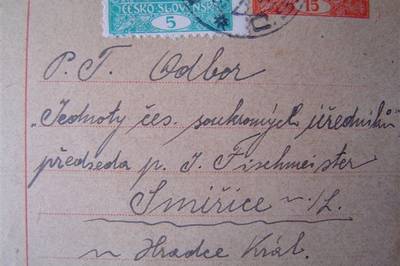 ČESKO-SLOVENSKÁ
5
15
P. T. Odbor
„Jednoty čes. soukromých úředníků"
předseda p. J. Fischmeister
Smiřice n./L.
u Hradce Král.